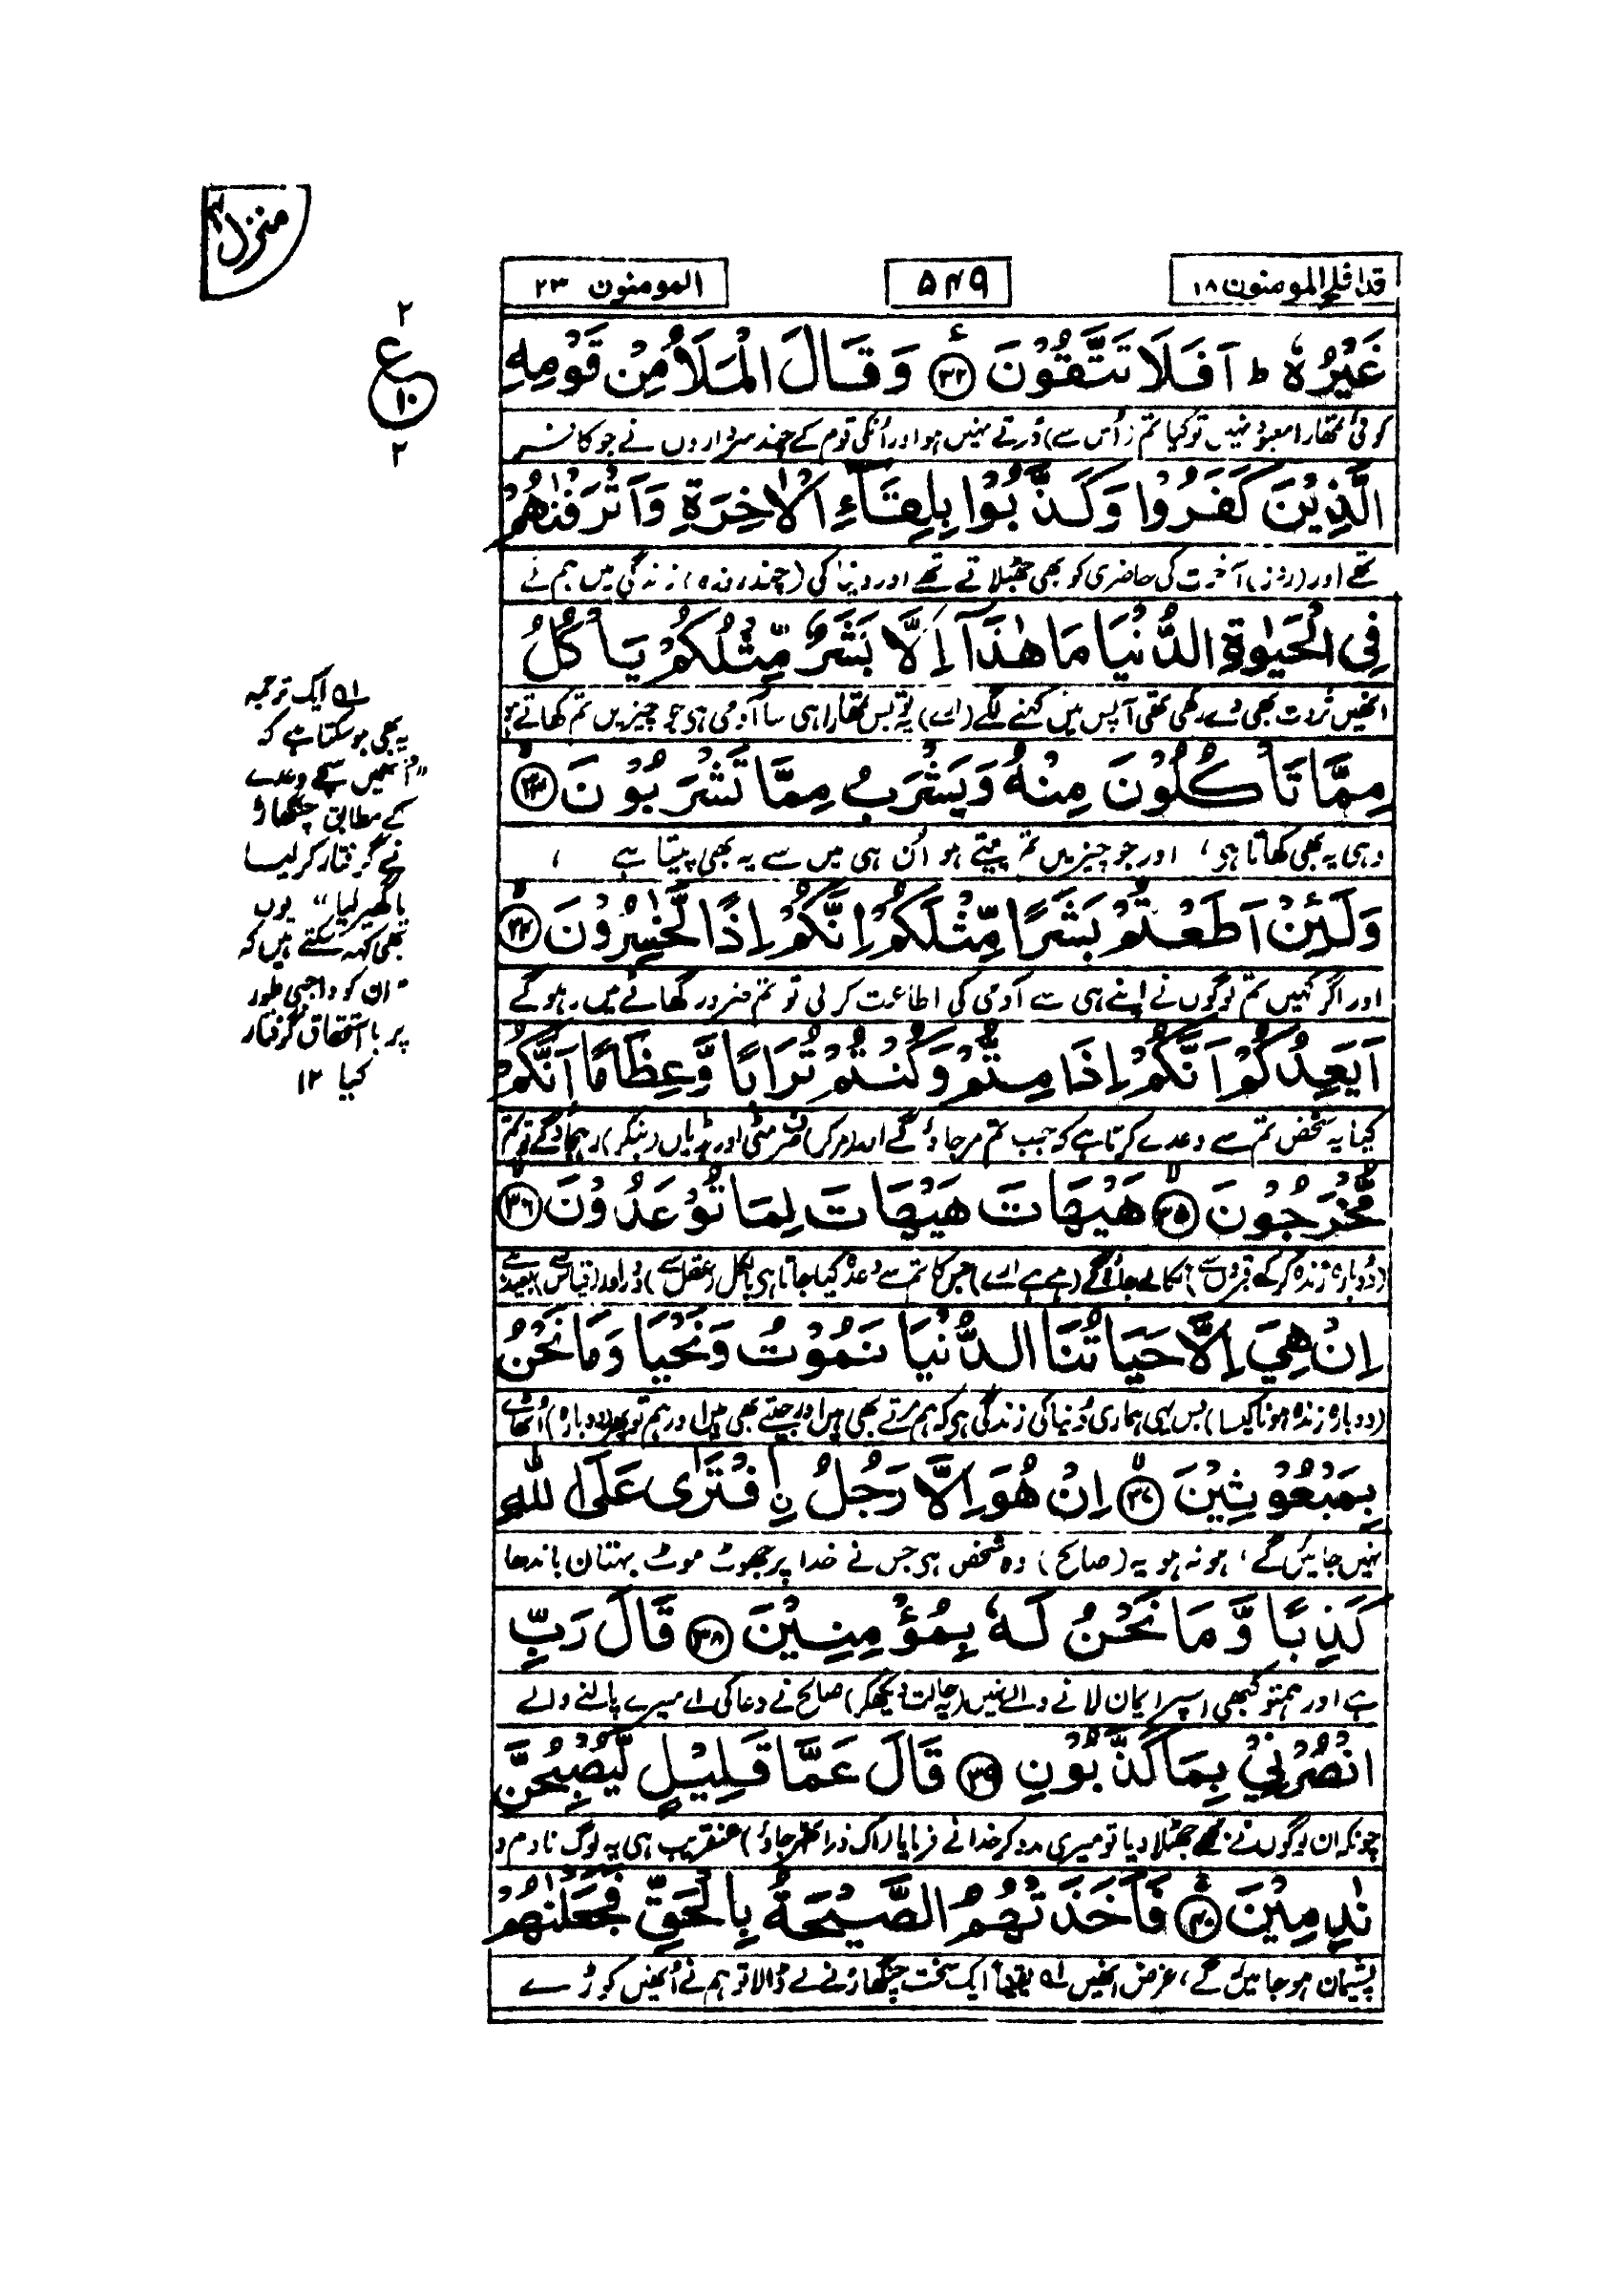 منزل ۴
قد افلح المومنون ۱۸
۵۴۹
المومنون ۲۳
۲
ع
۱۰
۲
غَيْرُهٗ ؕ اَفَلَا تَتَّقُوْنَ ﴿۳۲﴾ وَقَالَ الْمَلَاُ مِنْ قَوْمِهِ
کوئی تمھارا معبود نہیں تو کیا تم (اُس سے) ڈرتے نہیں ہو اور اُنکی قوم کے چند سرداروں نے جو کافر
الَّذِيْنَ كَفَرُوْا وَكَذَّبُوْا بِلِقَآءِ الْاٰخِرَةِ وَاَتْرَفْنٰهُمْ
تھے اور (روز) آخرت کی حاضری کو بھی جھٹلاتے تھے اور دنیا کی (چند روزہ) زندگی میں ہم نے
فِي الْحَيٰوةِ الدُّنْيَا مَا هٰذَآ اِلَّا بَشَرٌ مِّثْلُكُمْ يَاْكُلُ
انھیں ثروت بھی دے رکھی تھی آپس میں کہنے لگے (ارے) یہ تو بس تمھارا ہی سا آدمی ہی جو چیزیں تم کھاتے ہو
مِمَّا تَاْكُلُوْنَ مِنْهُ وَيَشْرَبُ مِمَّا تَشْرَبُوْنَ ﴿۳۳﴾
وہی یہ بھی کھاتا ہی، اور جو چیزیں تم پیتے ہو اُن ہی میں سے یہ بھی پیتا ہے ،
وَلَئِنْ اَطَعْتُمْ بَشَرًا مِّثْلَكُمْ اِنَّكُمْ اِذًا لَّخٰسِرُوْنَ ﴿۳۴﴾
اور اگر کہیں تم لوگوں نے اپنے ہی سے آدمی کی اطاعت کر لی تو تم ضرور گھاٹے میں رہو گے
اَيَعِدُكُمْ اَنَّكُمْ اِذَا مِتُّمْ وَكُنْتُمْ تُرَابًا وَّعِظَامًا اَنَّكُمْ
کیا یہ شخص تم سے وعدے کرتا ہے کہ جب تم مر جاؤ گے اور (مر کر) مٹی اور ہڈیاں (بنکر) رہجاؤ گے تو تم
مُّخْرَجُوْنَ ﴿۳۵﴾ هَيْهَاتَ هَيْهَاتَ لِمَا تُوْعَدُوْنَ ﴿۳۶﴾
(دوبارہ زندہ کرکے قبروں سے) نکالے جاؤ گے (ہے ہے ارے) جس کا تم سے وعدہ کیا جاتا ہی بالکل (عقل سے) دُور اور (قیاس سے) بعید ہے
اِنْ هِيَ اِلَّا حَيَاتُنَا الدُّنْيَا نَمُوْتُ وَنَحْيَا وَمَا نَحْنُ
(دوبارہ زندہ ہونا کیسا) بس یہی ہماری دُنیا کی زندگی ہی کہ ہم مرتے بھی ہیں اور جیتے بھی ہیں اور ہم تو پھر (دوبارہ) اُٹھائے
بِمَبْعُوْثِيْنَ ﴿۳۷﴾ اِنْ هُوَ اِلَّا رَجُلُ نِ افْتَرٰى عَلَى اللّٰهِ
نہیں جائیں گے، ہو نہ ہو یہ (صالح) وہ شخص ہی جس نے خدا پر جھوٹ موٹ بہتان باندھا
كَذِبًا وَّمَا نَحْنُ لَهٗ بِمُؤْمِنِيْنَ ﴿۳۸﴾ قَالَ رَبِّ
ہے اور ہم تو کبھی اسپر ایمان لانے والے نہیں (یہ حالت دیکھکر) صالح نے دعا کی اے میرے پالنے والے
انْصُرْنِيْ بِمَا كَذَّبُوْنِ ﴿۳۹﴾ قَالَ عَمَّا قَلِيْلٍ لَّيُصْبِحُنَّ
چونکہ ان لوگوں نے مجھے جھٹلا دیا تو میری مدد کر خدا نے فرمایا (اک ذرا ٹھہر جاؤ) عنقریب ہی یہ لوگ نادم و
نٰدِمِيْنَ ﴿۴۰﴾ فَاَخَذَتْهُمُ الصَّيْحَةُ بِالْحَقِّ فَجَعَلْنٰهُمْ
پشیمان ہو جائیں گے، غرض انھیں ۱ یقیناً ایک سخت چنگھاڑ نے لے ڈالا تو ہم نے اُنھیں کوڑے
۱ ایک ترجمہ
یہ بھی ہو سکتا ہے کہ
"انھیں سچے وعدے
کے مطابق چنگھاڑ
نے گرفتار کر لیا
یا گھیر لیا" یوں
بھی کہہ سکتے ہیں کہ
"ان کو واجبی طور
پر باستحقاق گرفتار
کیا ۱۲